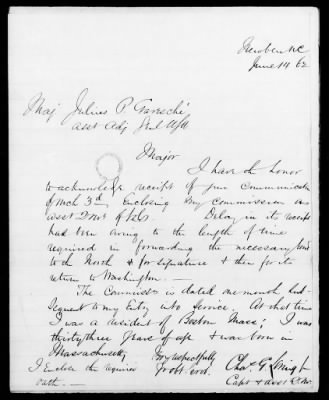 Newbern NC
June 14 62
Maj Julius P Garesché
asst Adj Genl
Major
I have the honor
to acknowledge receipt of your Communication
of Mch 3d, Enclosing my Commission as
asst Qr Mr of Vols. Delay in its receipt
has been owing to the length of time
required in forwarding the necessary bond
to the North & for signature & then for its
return to Washington. —
The Commission is dated one month sub-
sequent to my Entry into Service. At that time
I was a resident of Boston Mass; I was
thirty three years of age & was born in
Massachusetts Very respectfully
I Enclose the required Yr obt Servt
oath. — Chas G
Capt & asst Q. M.